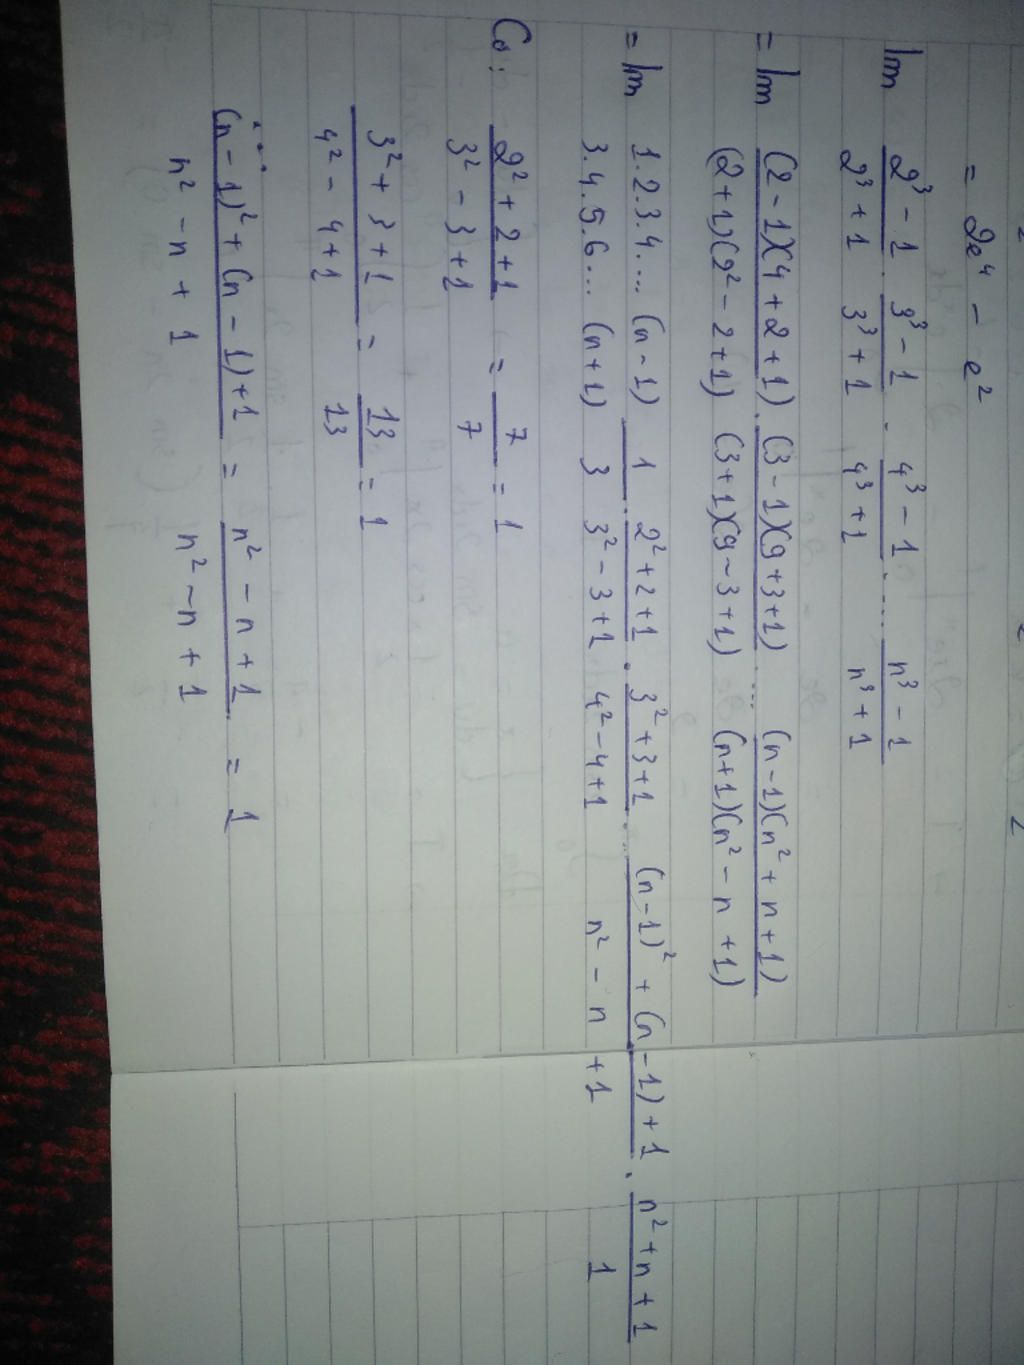 = 2e⁴ - e²
lim 2³ - 1 / 2³ + 1 . 3³ - 1 / 3³ + 1 . 4³ - 1 / 4³ + 1 .... n³ - 1 / n³ + 1
= lim (2 - 1)(4 + 2 + 1) / (2 + 1)(2² - 2 + 1) . (3 - 1)(9 + 3 + 1) / (3 + 1)(9 - 3 + 1) ... (n - 1)(n² + n + 1) / (n + 1)(n² - n + 1)
= lim 1.2.3.4.... (n - 1) / 3.4.5.6... (n + 1) 1 / 3 . 2² + 2 + 1 / 3² - 3 + 1 . 3² + 3 + 1 / 4² - 4 + 1 .... (n - 1)² + (n - 1) + 1 / n² - n + 1 . n² + n + 1 / 1
Có: 2² + 2 + 1 / 3² - 3 + 1 = 7 / 7 = 1
3² + 3 + 1 / 4² - 4 + 1 = 13 / 13 = 1
...
(n - 1)² + (n - 1) + 1 / n² - n + 1 = n² - n + 1 / n² - n + 1 = 1